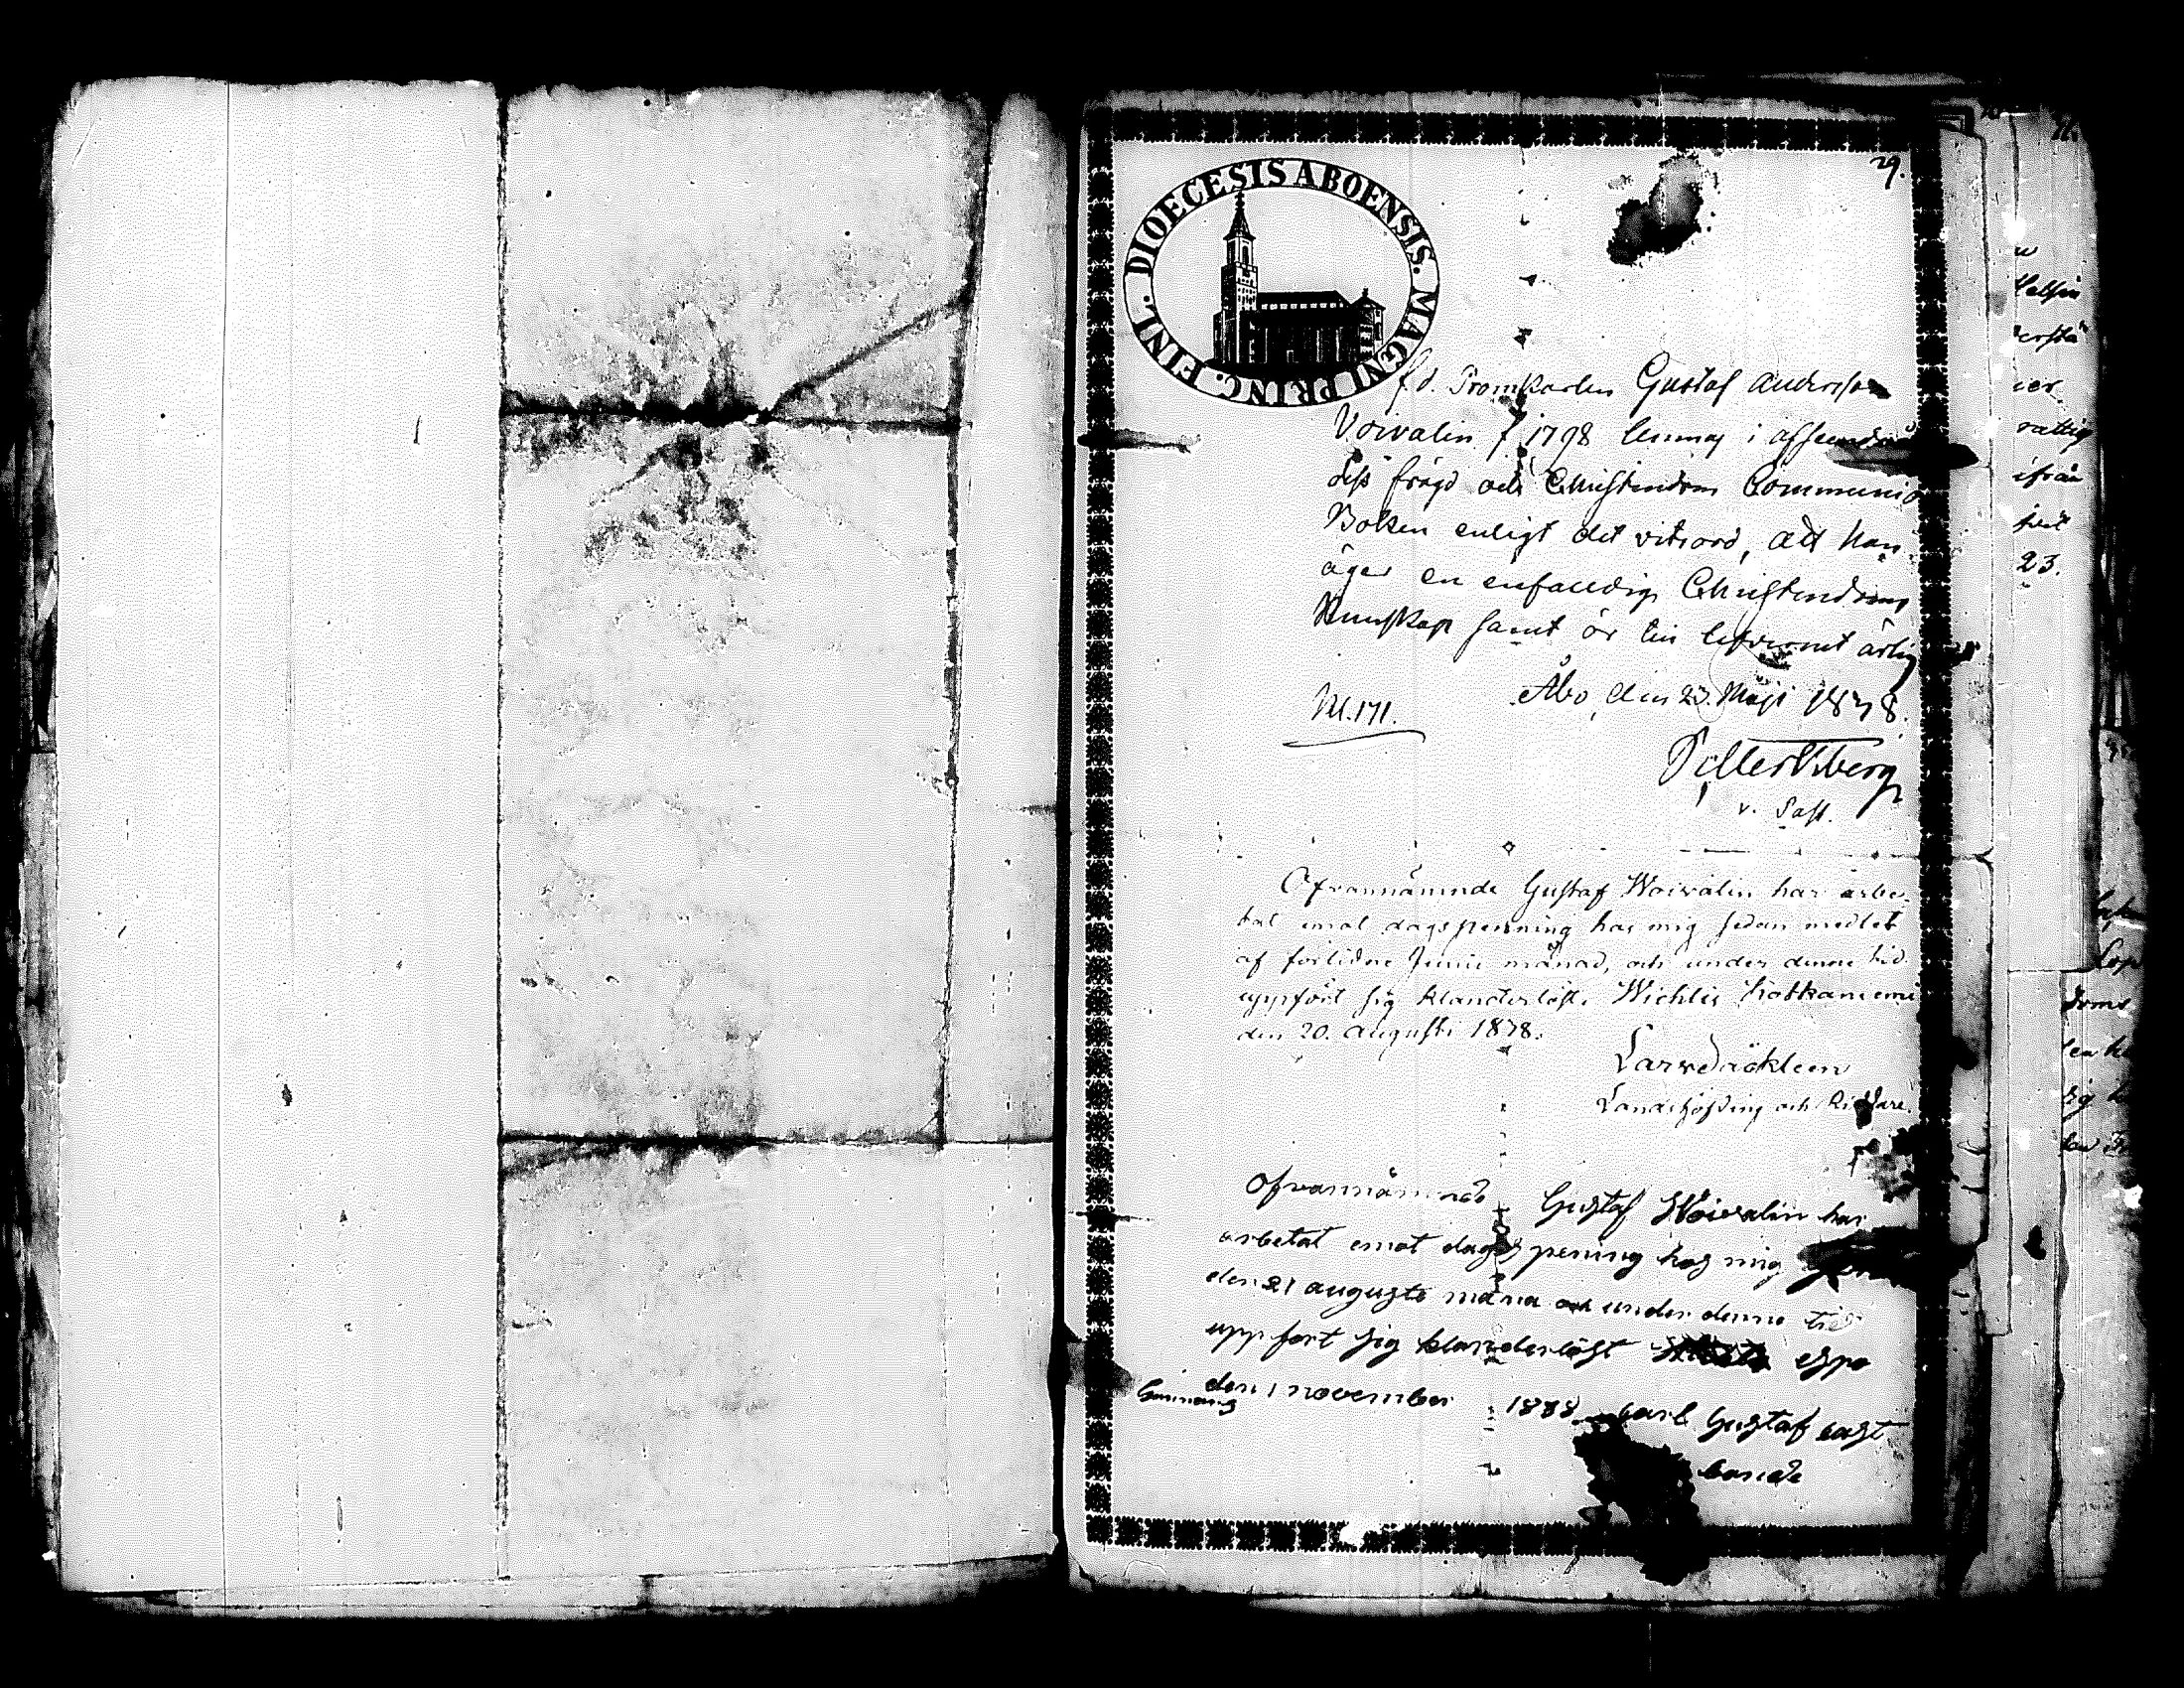 29.
DIOECESIS ABOENSIS. MAGNI PRINC. FINL.
f.d. Promkarlen Gustaf Andersson
Voivalin f. 1798 lemnas i afseende å
dess frägd och Christendom Communion
Boken enligt det vitsord, att han
äger en enfaldig Christendoms
Kunskap samt är till lefvernet ärlig
Åbo, den 23. Maji 1838.
N. 171.
v. Past.
Ofvannämnde Gustaf Woivalin har arbe-
tat emot dagspenning hos mig sedan medlet
af förlidne Junii månad, och under denne tid
uppfört sig klanderlöst. Wichtis Kotkaniemi
den 20. Augusti 1838.
Landshöfding och Riddare.
Ofvannämnde Gustaf Woivalin har
arbetat emot dags pening hos mig
den 21 augusti måna och under denne tid
uppfört sig klanderlöst Espo
den 1 november 1838 Carl Gustaf
bonde